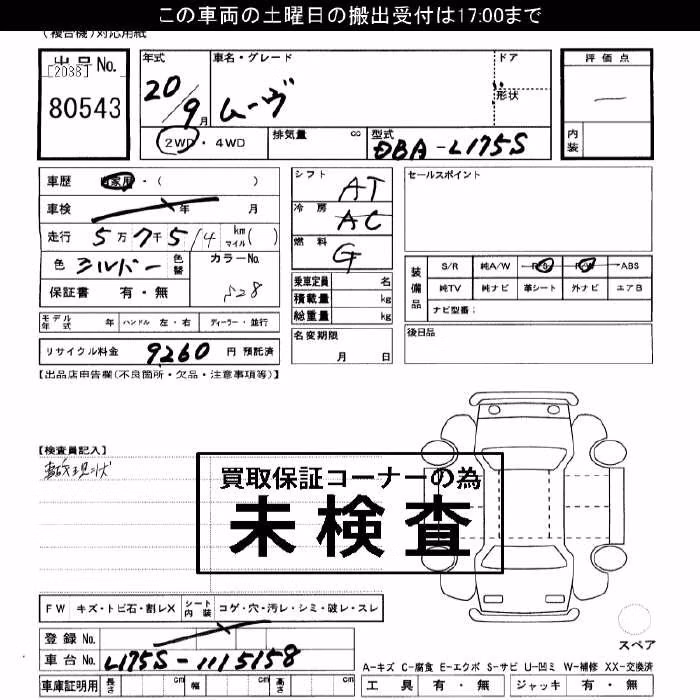 この車両の土曜日の搬出受付は17:00まで
(複合機)対応用紙
出品No.
[2038]
80543
年式
20/9月
車名・グレード
ムーヴ
ドア
形状
評価点
内装
2WD・4WD
排気量 cc
型式
DBA-L175S
車歴 自家用・( )
車検 年 月
走行 5万7千5/4 km マイル( )
色 シルバー 色替
カラーNo.
S28
保証書 有・無
シフト AT
冷房 AC
燃料 G
乗車定員 名
積載量 kg
総重量 kg
セールスポイント
装備品
S/R 純A/W P/S P/W ABS
純TV 純ナビ 革シート 外ナビ エアB
ナビ型番:
モデル年式 年 ハンドル 左・右 ディーラー・並行
名変期限
月 日
後日品
リサイクル料金 9260 円 預託済
【出品店申告欄(不良箇所・欠品・注意事項等)】
【検査員記入】
買取保証コーナーの為
未検査
FW キズ・トビ石・割レX シート内装 コゲ・穴・汚レ・シミ・破レ・スレ
登録No.
車台No. L175S-1115158
車庫証明用 長さ cm 幅 cm 高さ cm
スペア
A-キズ C-腐食 E-エクボ S-サビ U-凹ミ W-補修 XX-交換済
工具 有・無 ジャッキ 有・無